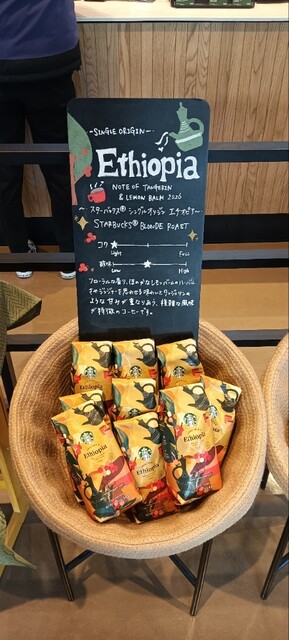 -SINGLE ORIGIN-
Ethiopia
NOTE OF TANGERIN
& LEMON BALM 2026
~スターバックス® シングルオリジン エチオピア~
STARBUCKS® BLONDE ROAST
コク
Light Full
酸味
Low High
フローラルな香り、ほのかなレモンバームのハーバル
ような甘みが重なりあう、複雑な風味
が特徴のコーヒーです。
Ethiopia
Ethiopia
Ethiopia